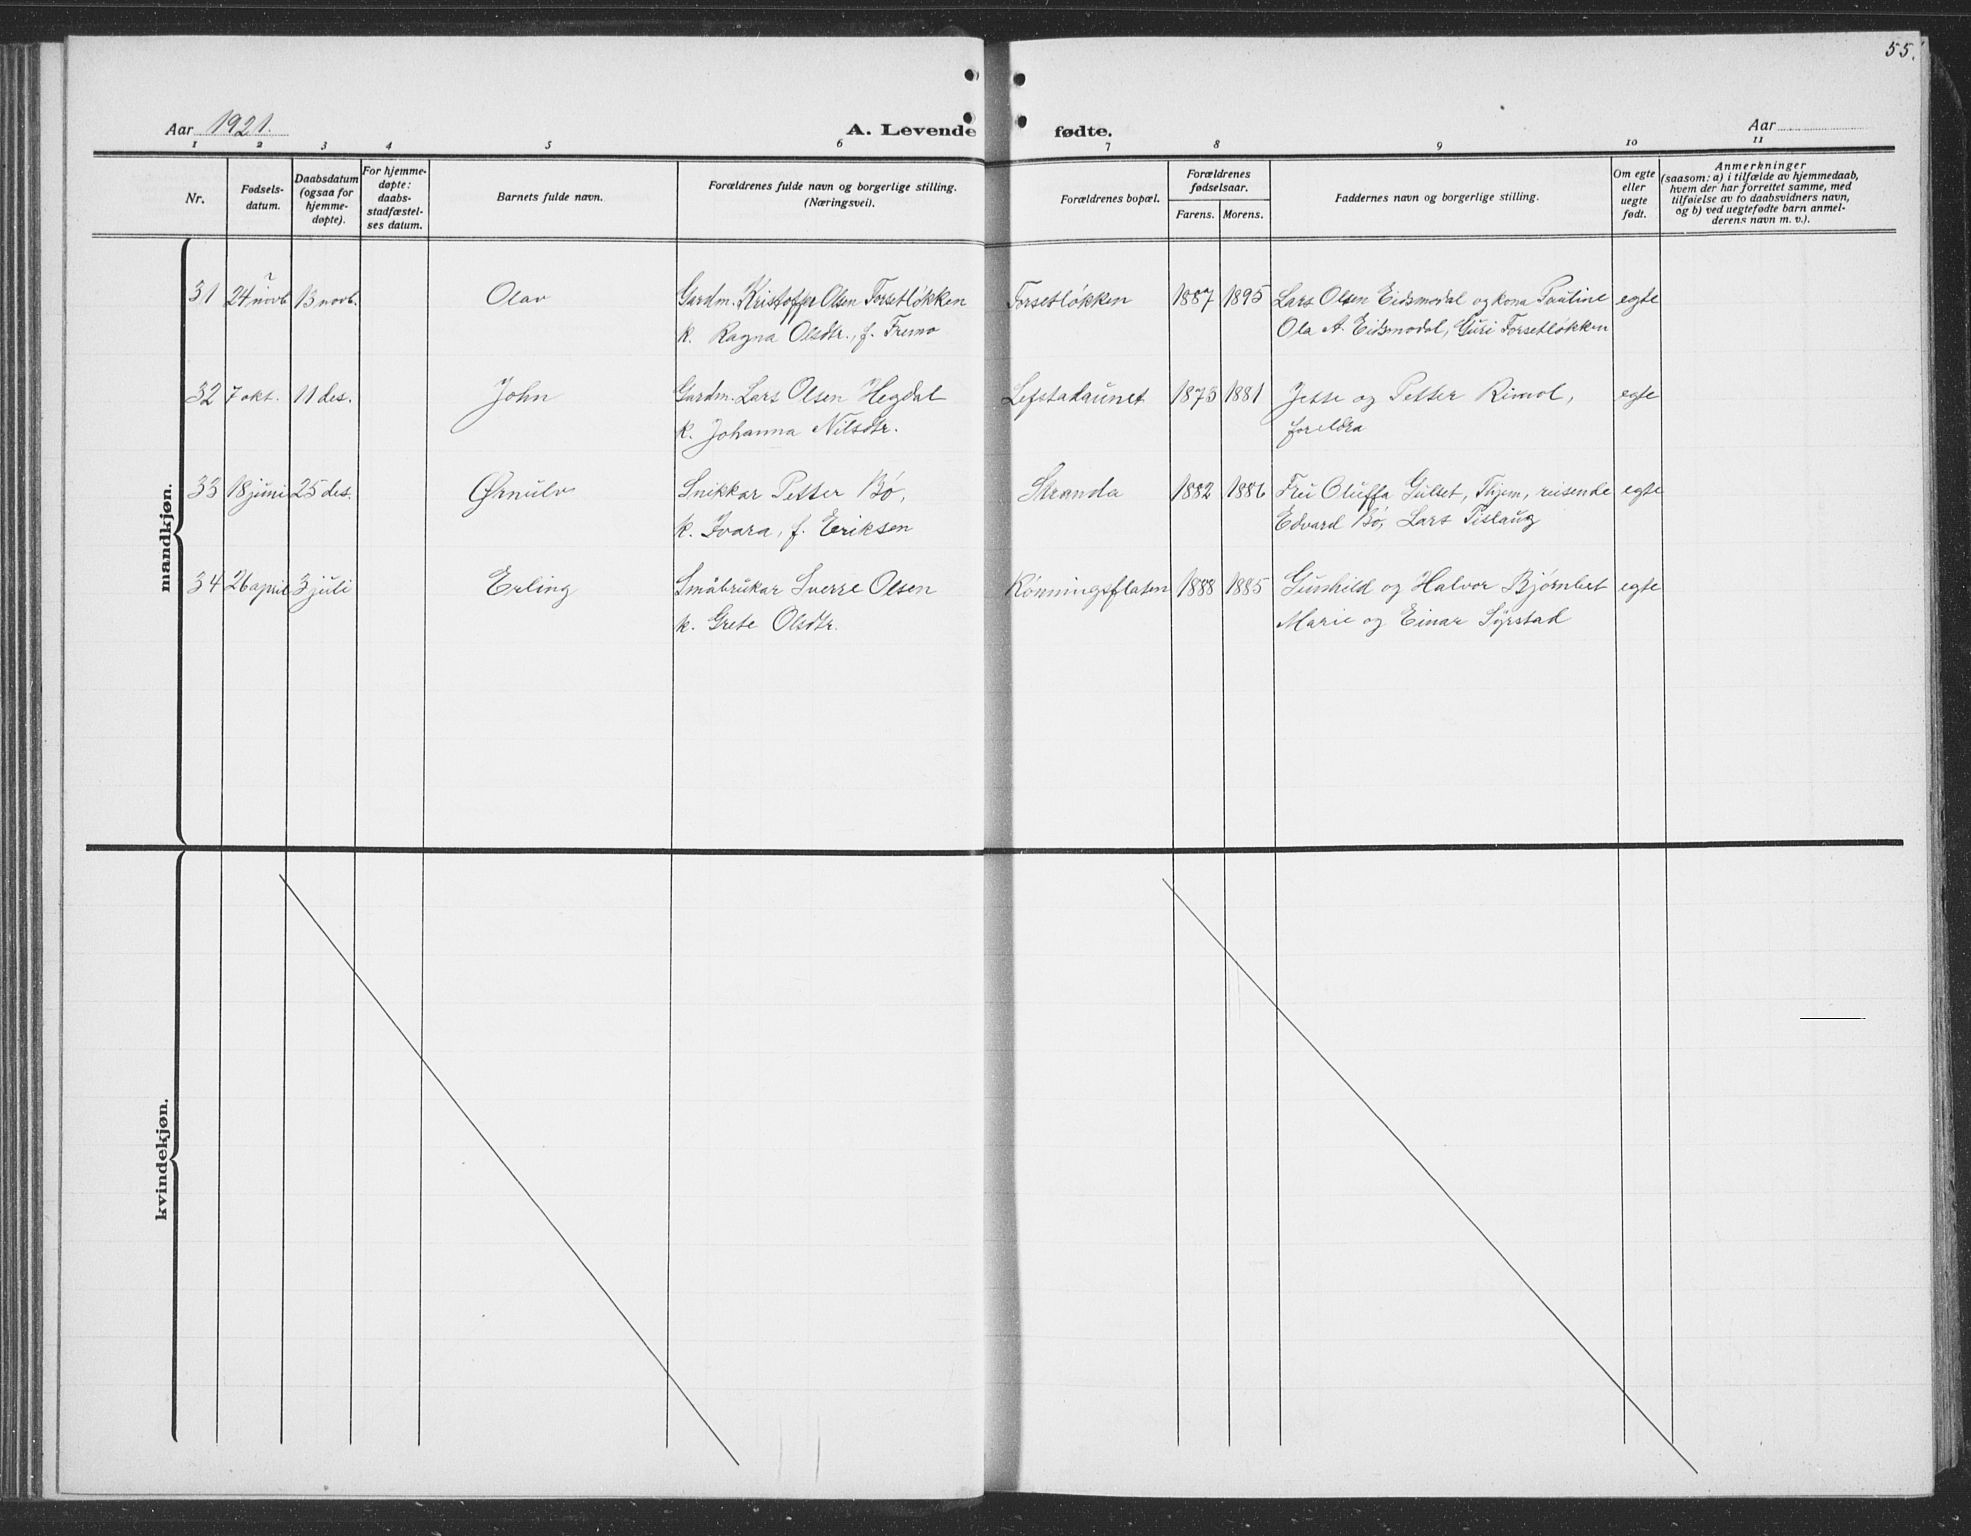 55.
Aar 1921. A. Levende fødte. Aar
1 2 3 4 5 6 7 8 9 10 11
Nr. Fødsels-datum. Daabsdatum (ogsaa for hjemme-døpte). For hjemme-døpte: daabs-stadfæstel-ses datum. Barnets fulde navn. Forældrenes fulde navn og borgerlige stilling. (Næringsvei). Forældrenes bopæl. Forældrenes fødselsaar. Farens. Morens. Faddernes navn og borgerlige stilling. Om egte eller uegte født. Anmerkninger (saasom: a) i tilfælde av hjemmedaab, hvem der har forrettet samme, med tilføielse av to daabsvidners navn, og b) ved uegtefødte barn anmel-derens navn m. v.).
mandkjøn.
31 24 novb 13 novb. Olav Gardm. Kristoffer Olsen Forsetløkken Forsetløkken 1887 1895 Lars Olsen Eidsmodal og kona Pauline egte
k. Ragna Olsdtr., f. Fremo Ola A. Eidsmodal, Guri Forsetløkken
32 7 okt. 11 des. John Gardm. Lars Olsen Hegdal Lefstadaunet 1875 1881 Jesse og Petter Rimol, egte
k. Johanna Nilsdtr. foreldra
33 18 juni 25 des. Ørnulv Snikkar Petter Bø, Stranda 1882 1886 Fru Oluffa Gulset, Thjem, reisende egte
k. Ivara, f. Eriksen Edvard Bø, Lars Tislaug
34 26 april 3 juli Erling Småbrukar Sverre Olsen Rønningsflaten 1888 1885 Gunhild og Halvor Bjørnbet egte
k. Grete Olsdtr. Marie og Einar Syrstad
kvindekjøn.